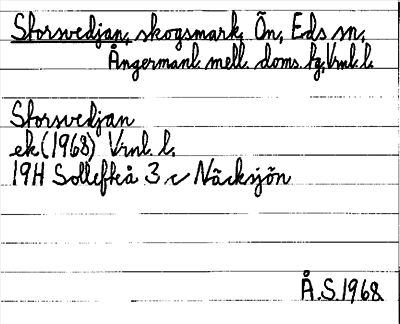 Storsvedjan, skogsmark, Ön, Eds sn,
Ångermanl. mell. doms. tg, Vrnl. l.
Storsvedjan
ek (1968) Vrnl. l.
19H Sollefteå 3 c Näcksjön
Å.S. 1968